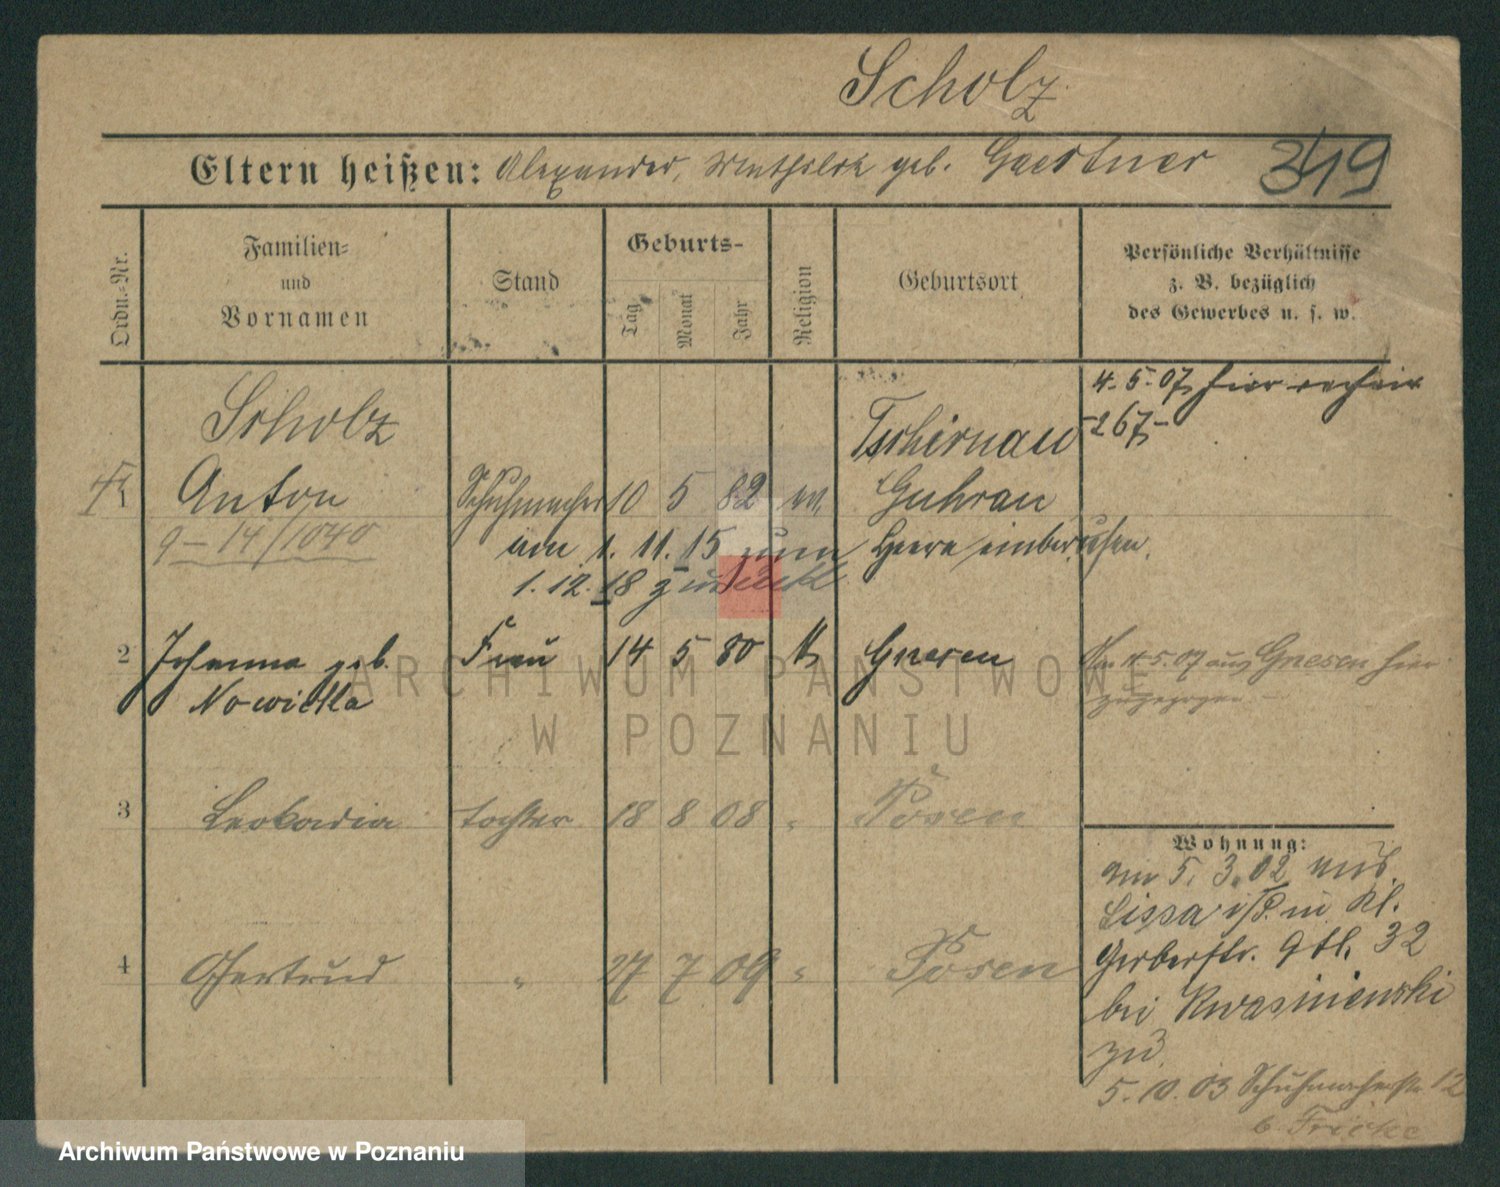 Scholz
Eltern heißen: Alexander, geb. Gaertner 349
Ordn.-Nr.
Familien-
und
Vornamen
Stand
Geburts-
Tag
Monat
Jahr
Religion
Geburtsort
Persönliche Verhältnisse
z. B. bezüglich
des Gewerbes u. s. w.
4. 5. 07 hier
-267-
Scholz
Anton Schuhmacher 10 5 82 ev. Tschirnau
Guhrau
9-14/1040
am 1. 11. 15 zum Heere einberufen.
1. 12. 18 zurück
2 Johanna geb. Frau 14 5 80 k Gnesen
Nowicka
4. 5. 07 aus Gnesen hier
zugezogen
3 Leokadia Tochter 18 8 08 " Posen
4 Gertrud " 27 7 09 " Posen
Wohnung:
am 5. 3. 02 aus
Lissa i/P. in Kl.
Gerberstr. 32
bei Kwasniewski
zu
5. 10. 03 Schuhmacherstr. 12
b. Fricke
ARCHIWUM PAŃSTWOWE
W POZNANIU
Archiwum Państwowe w Poznaniu